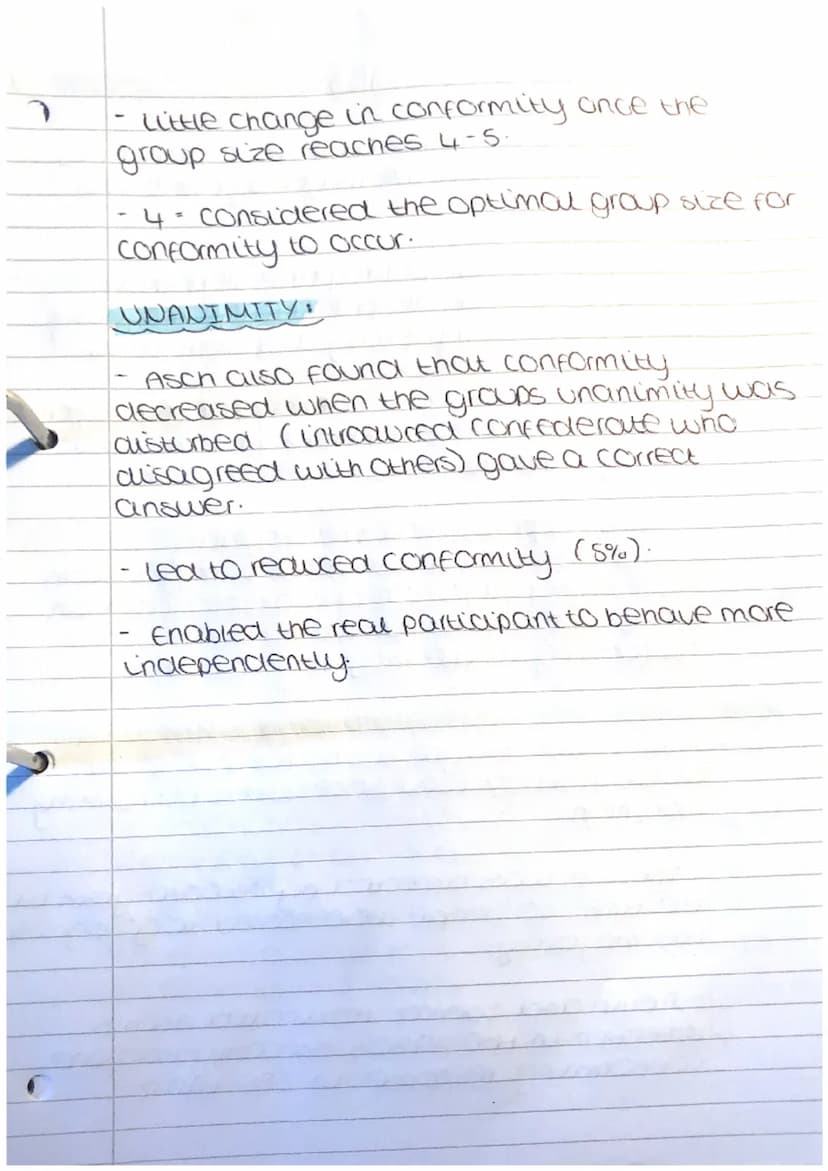 - little change in conformity once the
group size reaches 4-5.
- 4 = considered the optimal group size for
conformity to occur.
UNANIMITY:
- Asch also found that conformity
decreased when the groups unanimity was
disturbed (introduced confederate who
disagreed with others) gave a correct
answer.
- Led to reduced conformity (5%).
- Enabled the real participant to behave more
independently.